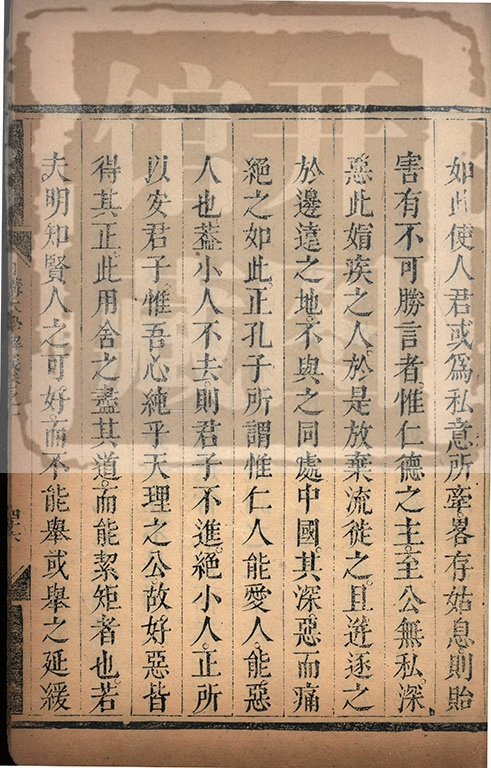 如此使人君或爲私意所牽畧存姑息則貽
害有不可勝言者惟仁德之主至公無私深
惡此媢疾之人於是放棄流徙之且迸逐之
於邊遠之地不與之同處中國其深惡而痛
絕之如此正孔子所謂惟仁人能愛人能惡
人也葢小人不去則君子不進絕小人正所
以安君子惟吾心純乎天理之公故好惡皆
得其正此用舍之盡其道而能絜矩者也若
夫明知賢人之可好而不能舉或舉之延緩